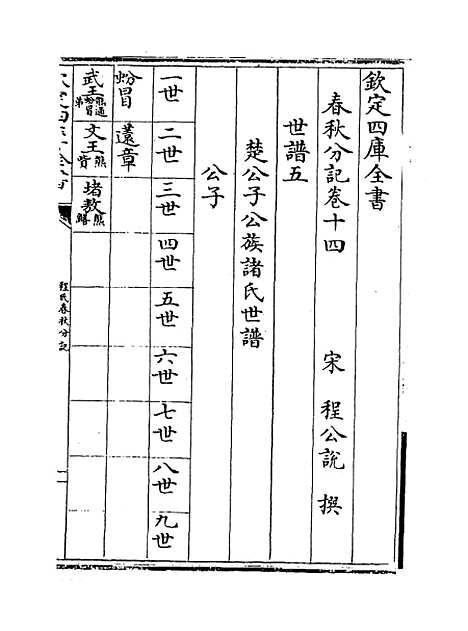 欽定四庫全書
春秋分記卷十四
宋 程公說 撰
世譜五
楚公子公族諸氏世譜
公子
一世 二世 三世 四世 五世 六世 七世 八世 九世
蚡冒 薳章
武王熊通蚡冒弟 文王熊貲 堵敖熊囏
欽定四庫全書
程氏春秋分記
一